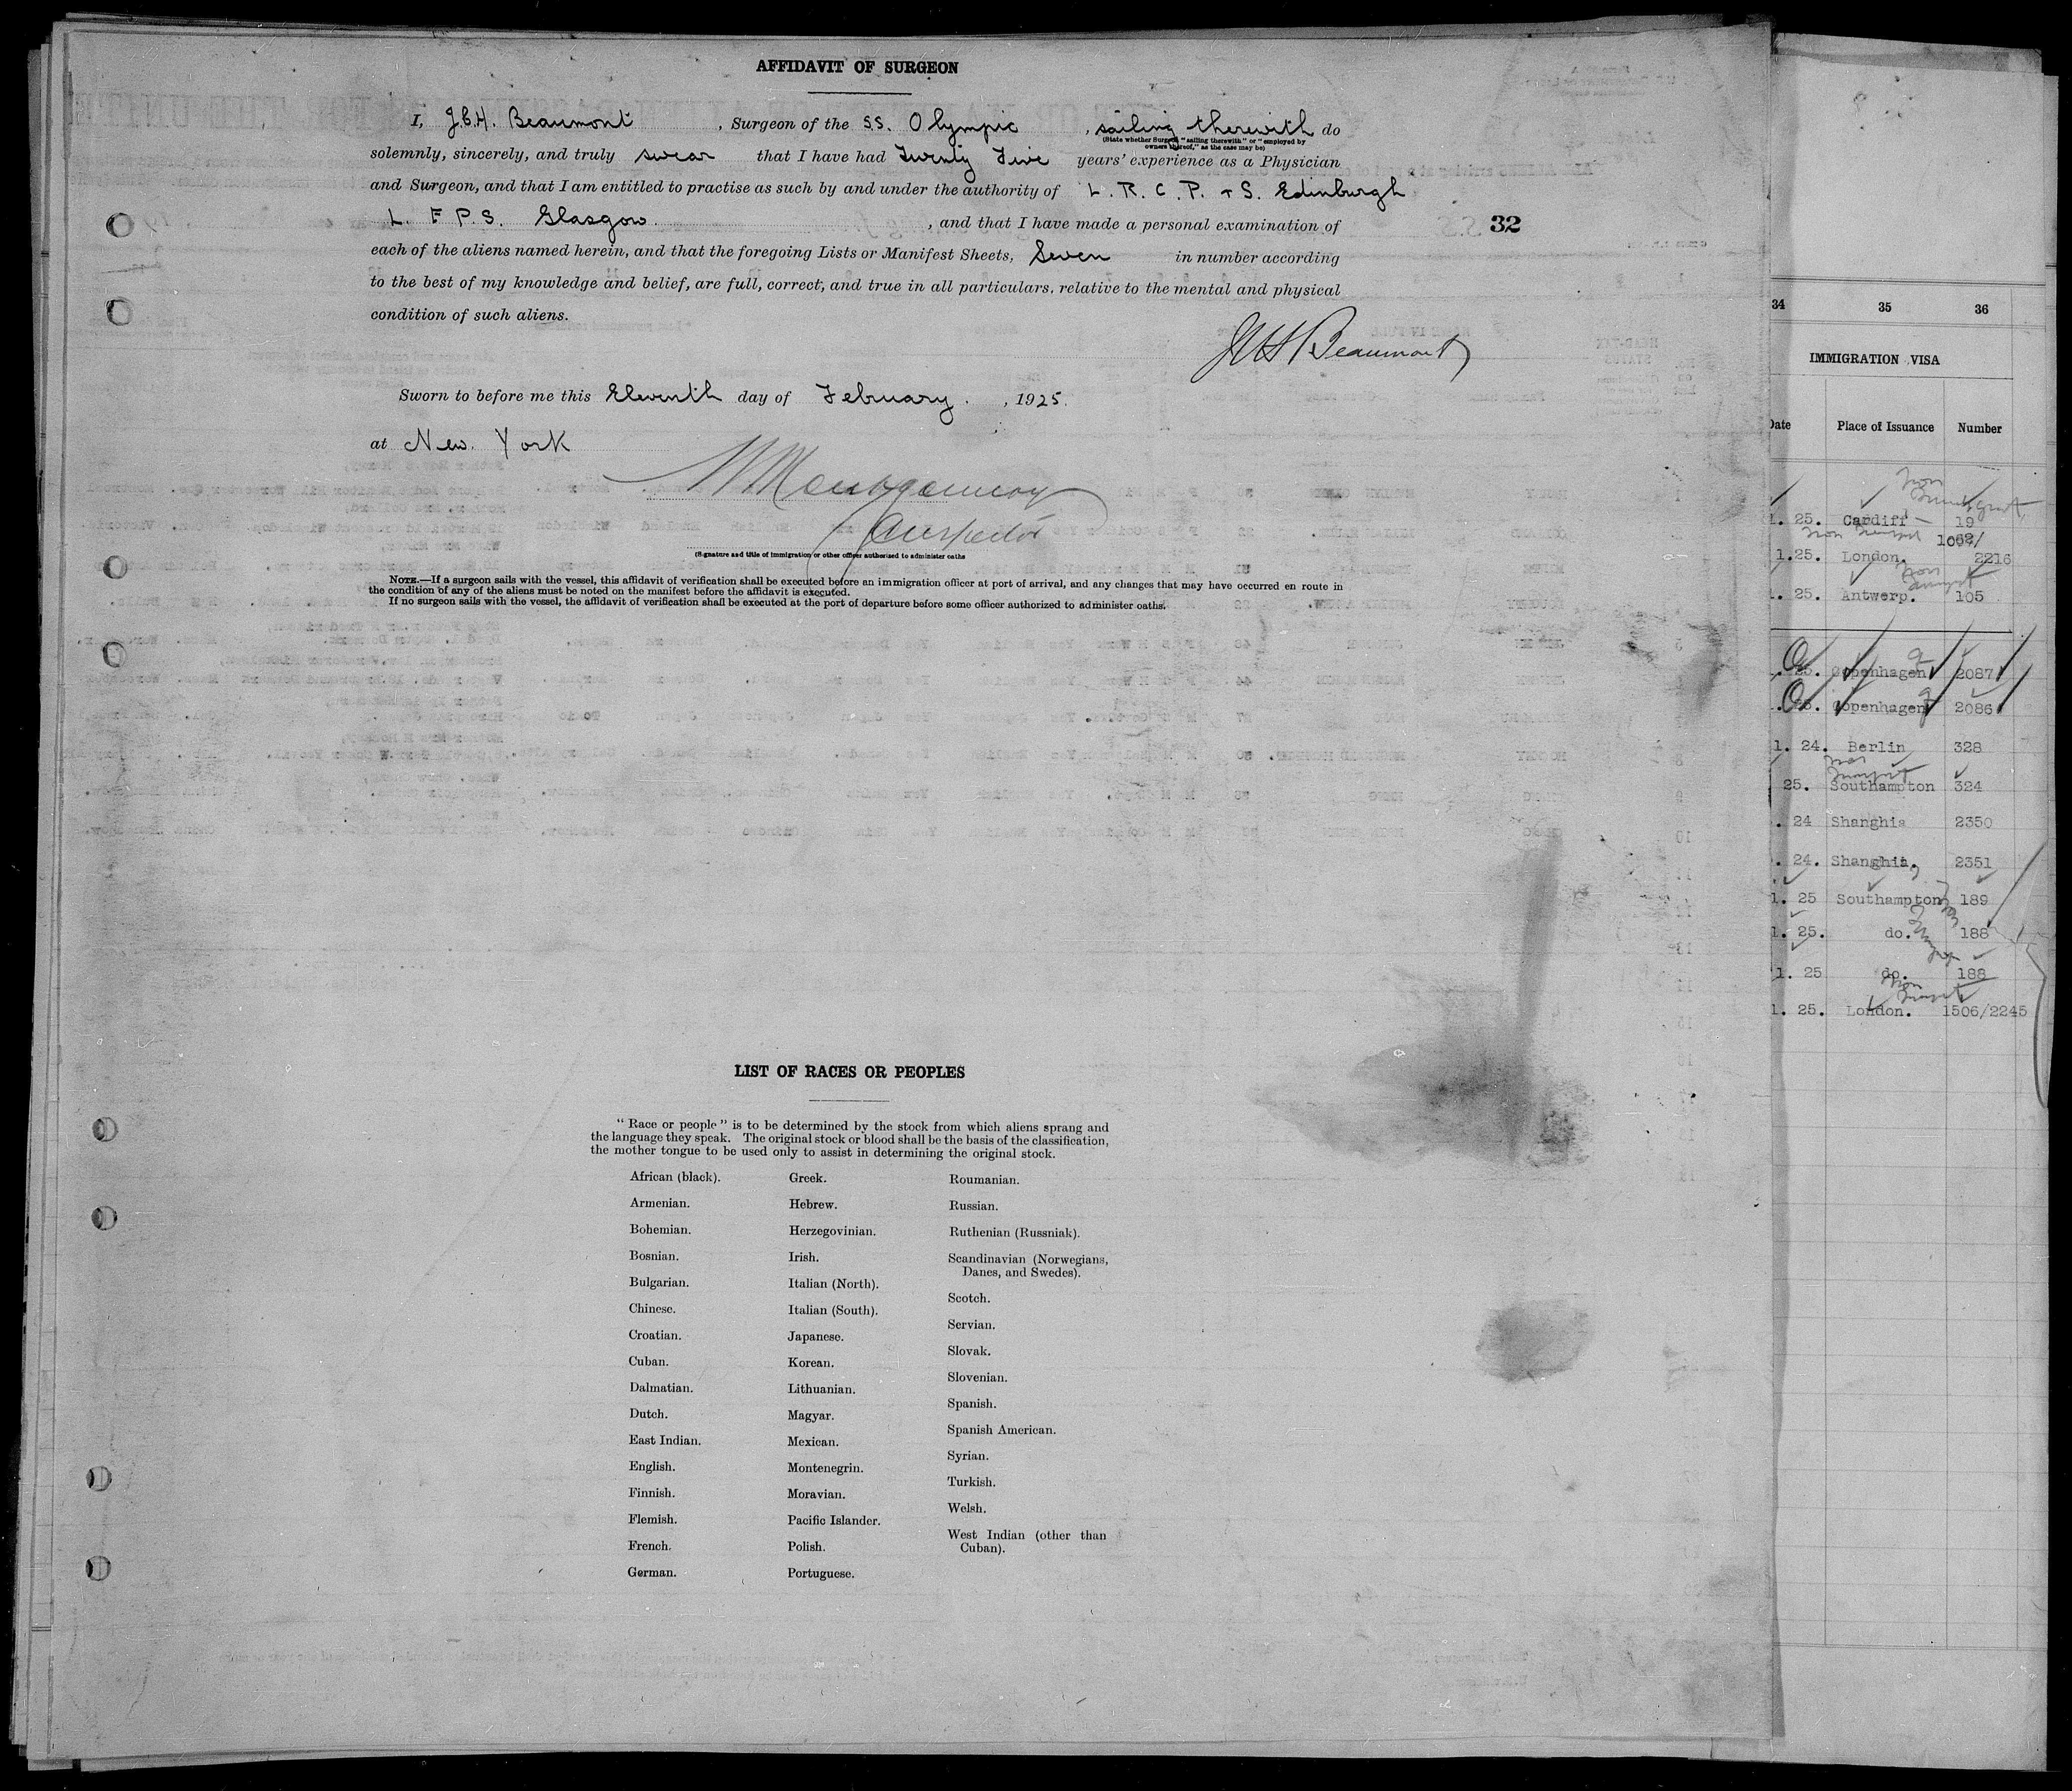 AFFIDAVIT OF SURGEON
I, J.C.H. Beaumont, Surgeon of the S.S. Olympic, sailing therewith do
(State whether Surgeon "sailing therewith" or "employed by
owners thereof," as the case may be)
solemnly, sincerely, and truly swear that I have had Twenty Five years' experience as a Physician
and Surgeon, and that I am entitled to practise as such by and under the authority of L.R.C.P. + S. Edinburgh
L. F P.S. Glasgow., and that I have made a personal examination of
32
each of the aliens named herein, and that the foregoing Lists or Manifest Sheets, Seven in number according
to the best of my knowledge and belief, are full, correct, and true in all particulars, relative to the mental and physical
condition of such aliens.
JCH Beaumont
Sworn to before me this Eleventh day of February., 1925.
at New. York
Montgomery
Inspector
(Signature and title of immigration or other officer authorized to administer oaths
NOTE.—If a surgeon sails with the vessel, this affidavit of verification shall be executed before an immigration officer at port of arrival, and any changes that may have occurred en route in
the condition of any of the aliens must be noted on the manifest before the affidavit is executed.
If no surgeon sails with the vessel, the affidavit of verification shall be executed at the port of departure before some officer authorized to administer oaths.
LIST OF RACES OR PEOPLES
"Race or people" is to be determined by the stock from which aliens sprang and
the language they speak. The original stock or blood shall be the basis of the classification,
the mother tongue to be used only to assist in determining the original stock.
African (black).
Armenian.
Bohemian.
Bosnian.
Bulgarian.
Chinese.
Croatian.
Cuban.
Dalmatian.
Dutch.
East Indian.
English.
Finnish.
Flemish.
French.
German.
Greek.
Hebrew.
Herzegovinian.
Irish.
Italian (North).
Italian (South).
Japanese.
Korean.
Lithuanian.
Magyar.
Mexican.
Montenegrin.
Moravian.
Pacific Islander.
Polish.
Portuguese.
Roumanian.
Russian.
Ruthenian (Russniak).
Scandinavian (Norwegians,
Danes, and Swedes).
Scotch.
Servian.
Slovak.
Slovenian.
Spanish.
Spanish American.
Syrian.
Turkish.
Welsh.
West Indian (other than
Cuban).
34 35 36
IMMIGRATION VISA
Date Place of Issuance Number
1. 25. Cardiff 19
1.25. London. 2216
. 25. Antwerp. 105
25. Copenhagen 2087
25. Copenhagen 2086
1. 24. Berlin 328
25. Southampton 324
. 24 Shanghia 2350
. 24. Shanghia, 2351
1. 25 Southampton 189
1. 25. do. 188
1. 25 do. 188
1. 25. London. 1506/2245